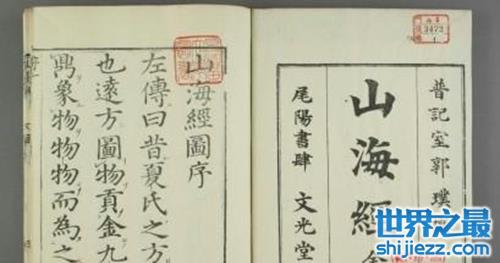 晋記室郭璞
山海經全
尾陽書肆 文光堂
山海經圖序
左傳曰昔夏氏之方
也遠方圖物貢金九
鼎象物物物而為之
3473
1
世界之最
shijiezz.com